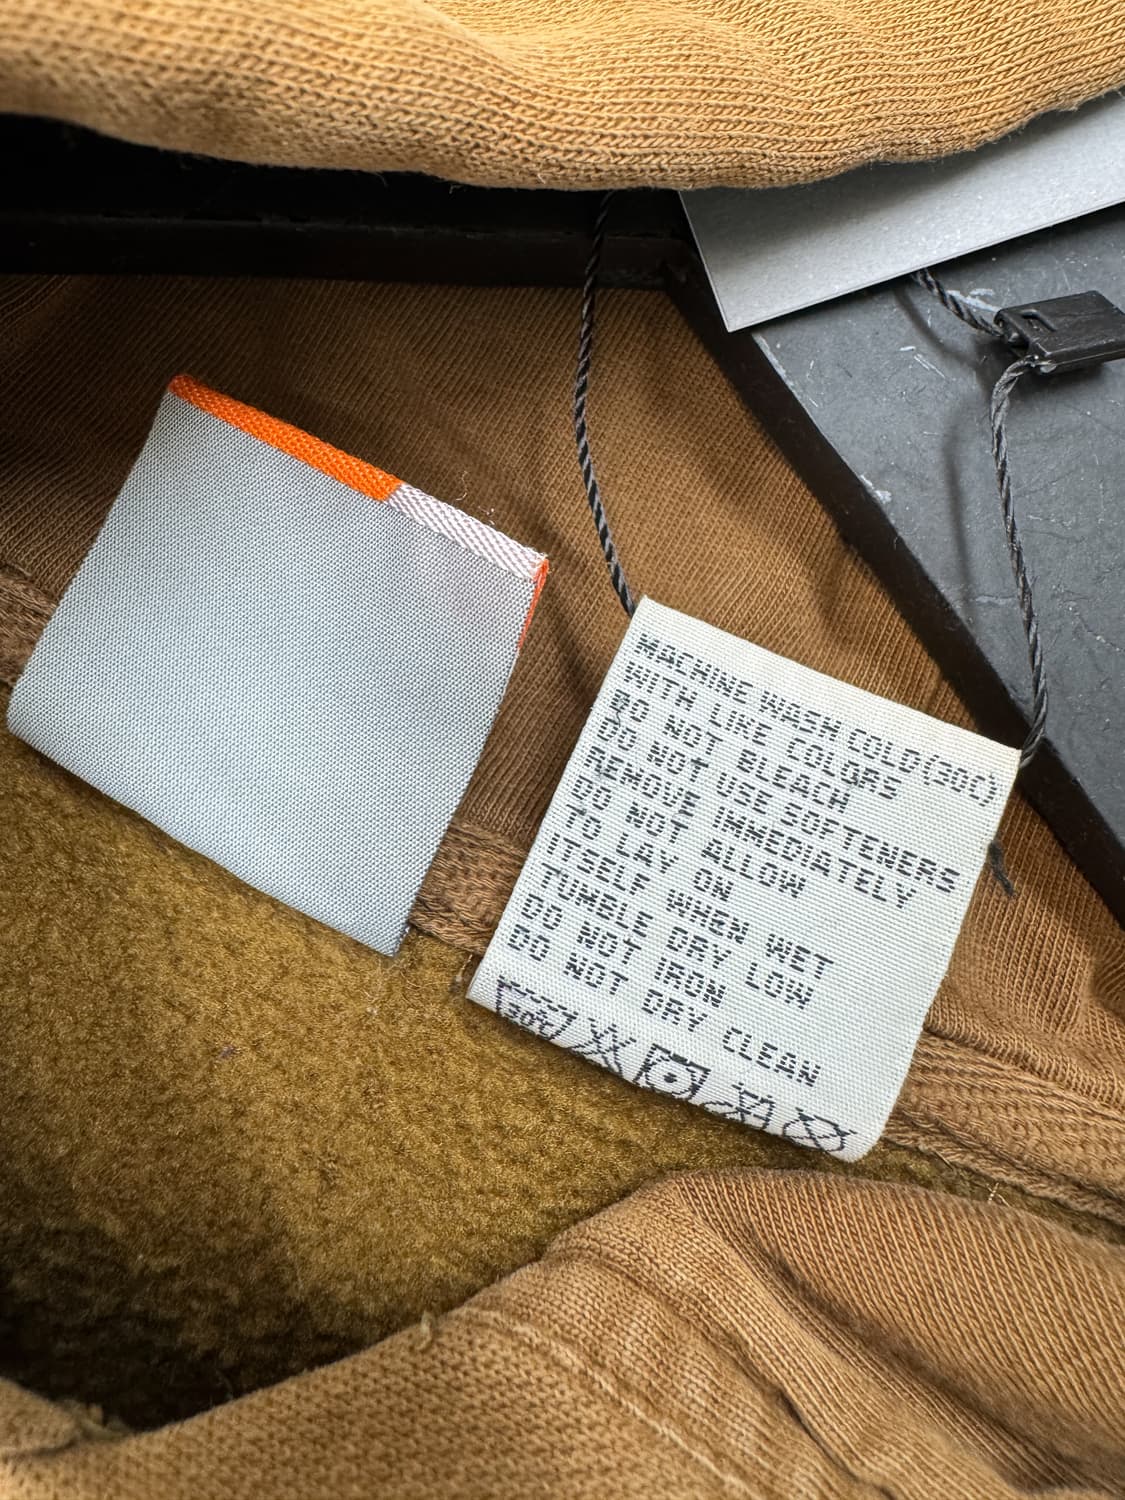 MACHINE WASH COLD (30C)
WITH LIKE COLORS
DO NOT BLEACH
DO NOT USE SOFTENERS
REMOVE IMMEDIATELY
DO NOT ALLOW
TO LAY ON
ITSELF WHEN WET
TUMBLE DRY LOW
DO NOT IRON
DO NOT DRY CLEAN
30C